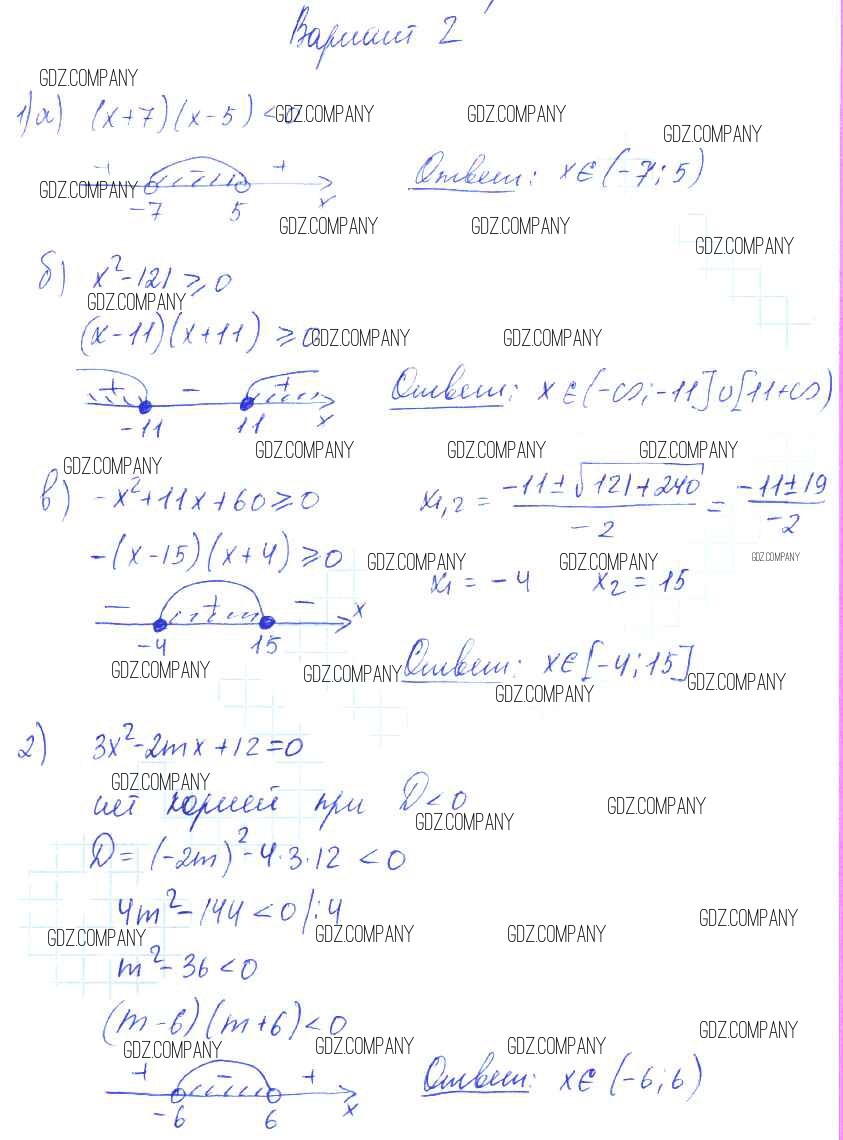 Вариант 2
GDZ.COMPANY
1) а) (x+7)(x-5) <0
GDZ.COMPANY GDZ.COMPANY
GDZ.COMPANY
+ - +
-7 5 x
Ответ: x∈(-7; 5)
GDZ.COMPANY
GDZ.COMPANY GDZ.COMPANY
GDZ.COMPANY
б) x²-121 ⩾ 0
GDZ.COMPANY
(x-11)(x+11) ⩾ 0
GDZ.COMPANY GDZ.COMPANY
+ - +
-11 11 x
Ответ: x∈(-∞; -11]∪[11+∞)
GDZ.COMPANY GDZ.COMPANY GDZ.COMPANY
GDZ.COMPANY
в) -x²+11x+60⩾0
x₁,₂ = (-11±√121+240)/-2 = (-11±19)/-2
-(x-15)(x+4) ⩾0
GDZ.COMPANY GDZ.COMPANY GDZ.COMPANY
x₁ = -4 x₂ = 15
- + - x
-4 15
Ответ: x∈[-4; 15]
GDZ.COMPANY GDZ.COMPANY GDZ.COMPANY GDZ.COMPANY
2) 3x²-2mx+12=0
GDZ.COMPANY
нет корней при D<0
GDZ.COMPANY GDZ.COMPANY
D = (-2m)²-4·3·12 <0
4m²-144<0 |:4
GDZ.COMPANY GDZ.COMPANY GDZ.COMPANY GDZ.COMPANY
m²-36<0
(m-6)(m+6)<0
GDZ.COMPANY GDZ.COMPANY GDZ.COMPANY GDZ.COMPANY
+ - +
-6 6 x
Ответ: x∈ (-6; 6)